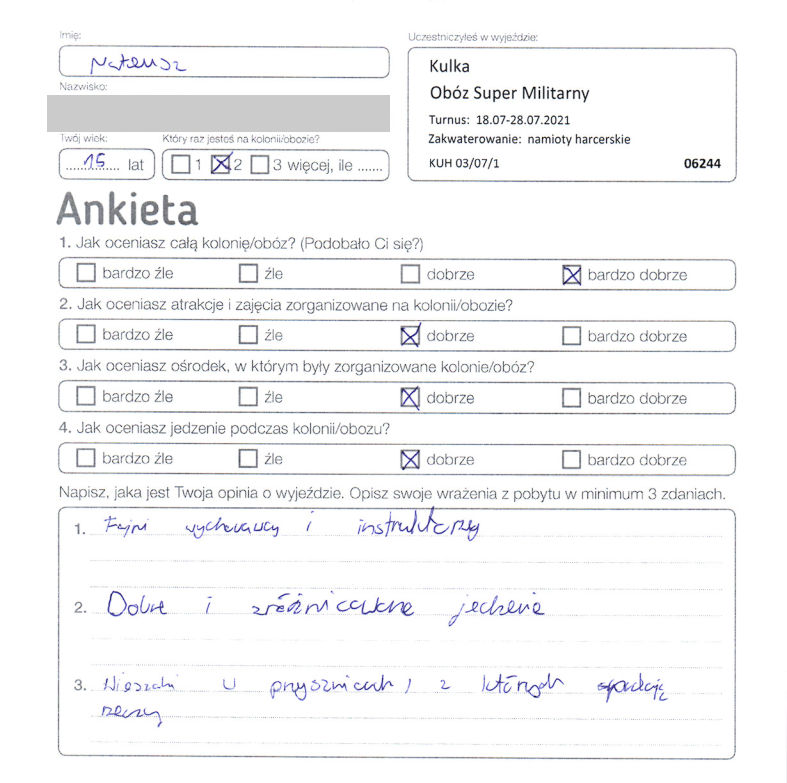 Imię:
Mateusz
Uczestniczyłeś w wyjeździe:
Kulka
Obóz Super Militarny
Turnus: 18.07-28.07.2021
Zakwaterowanie: namioty harcerskie
KUH 03/07/1 06244
Nazwisko:
Twój wiek: Który raz jesteś na kolonii/obozie?
15 lat 1 2 3 więcej, ile .......
Ankieta
1. Jak oceniasz całą kolonię/obóz? (Podobało Ci się?)
bardzo źle źle dobrze bardzo dobrze
2. Jak oceniasz atrakcje i zajęcia zorganizowane na kolonii/obozie?
bardzo źle źle dobrze bardzo dobrze
3. Jak oceniasz ośrodek, w którym były zorganizowane kolonie/obóz?
bardzo źle źle dobrze bardzo dobrze
4. Jak oceniasz jedzenie podczas kolonii/obozu?
bardzo źle źle dobrze bardzo dobrze
Napisz, jaka jest Twoja opinia o wyjeździe. Opisz swoje wrażenia z pobytu w minimum 3 zdaniach.
1. Fajni wychowawcy i instruktorzy
2. Dobre i zróżnicowane jedzenie
3. Wieszaki w prysznicach, z których spadają
rzeczy